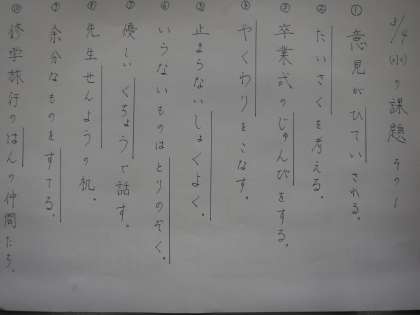 2/4(水)の課題 その1
① 意見がひていされる。
② たいさくを考える。
③ 卒業式のじゅんびをする。
④ やくわりをこなす。
⑤ 止まらないしょくよく。
⑥ いらないものはとりのぞく。
⑦ 優しいくちょうで話す。
⑧ 先生せんようの机。
⑨ 余分なものをすてる。
⑩ 修学旅行のはんの仲間たち。